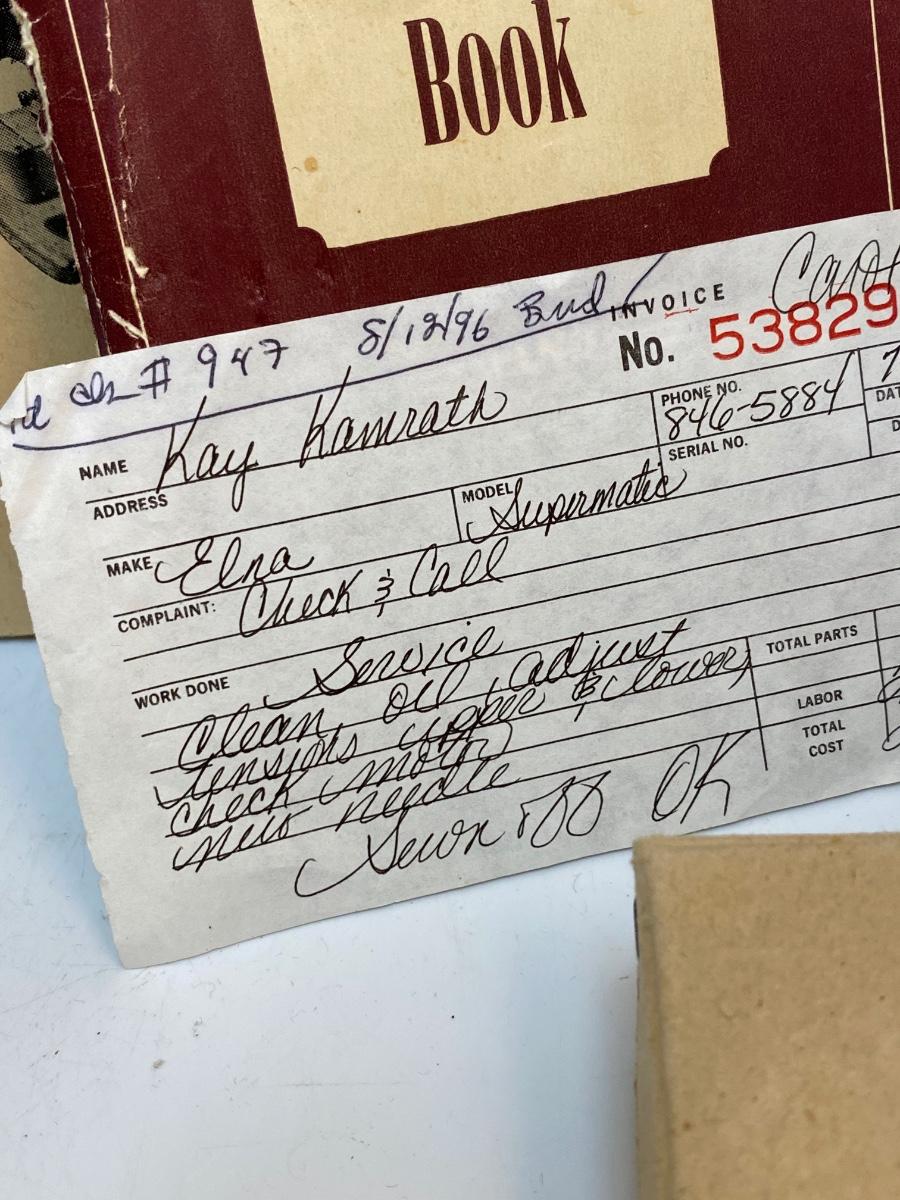 Book
# 947 8/12/96 Bud
INVOICE
No. 53829
NAME Kay Kamrath
PHONE NO. 846-5884
ADDRESS
SERIAL NO.
MAKE Elna
MODEL Supermatic
COMPLAINT: Check & Call
WORK DONE Service
Clean, oil, adjust
tensions upper & lower,
check motor
new needle
Sewn off OK
TOTAL PARTS
LABOR
TOTAL
COST